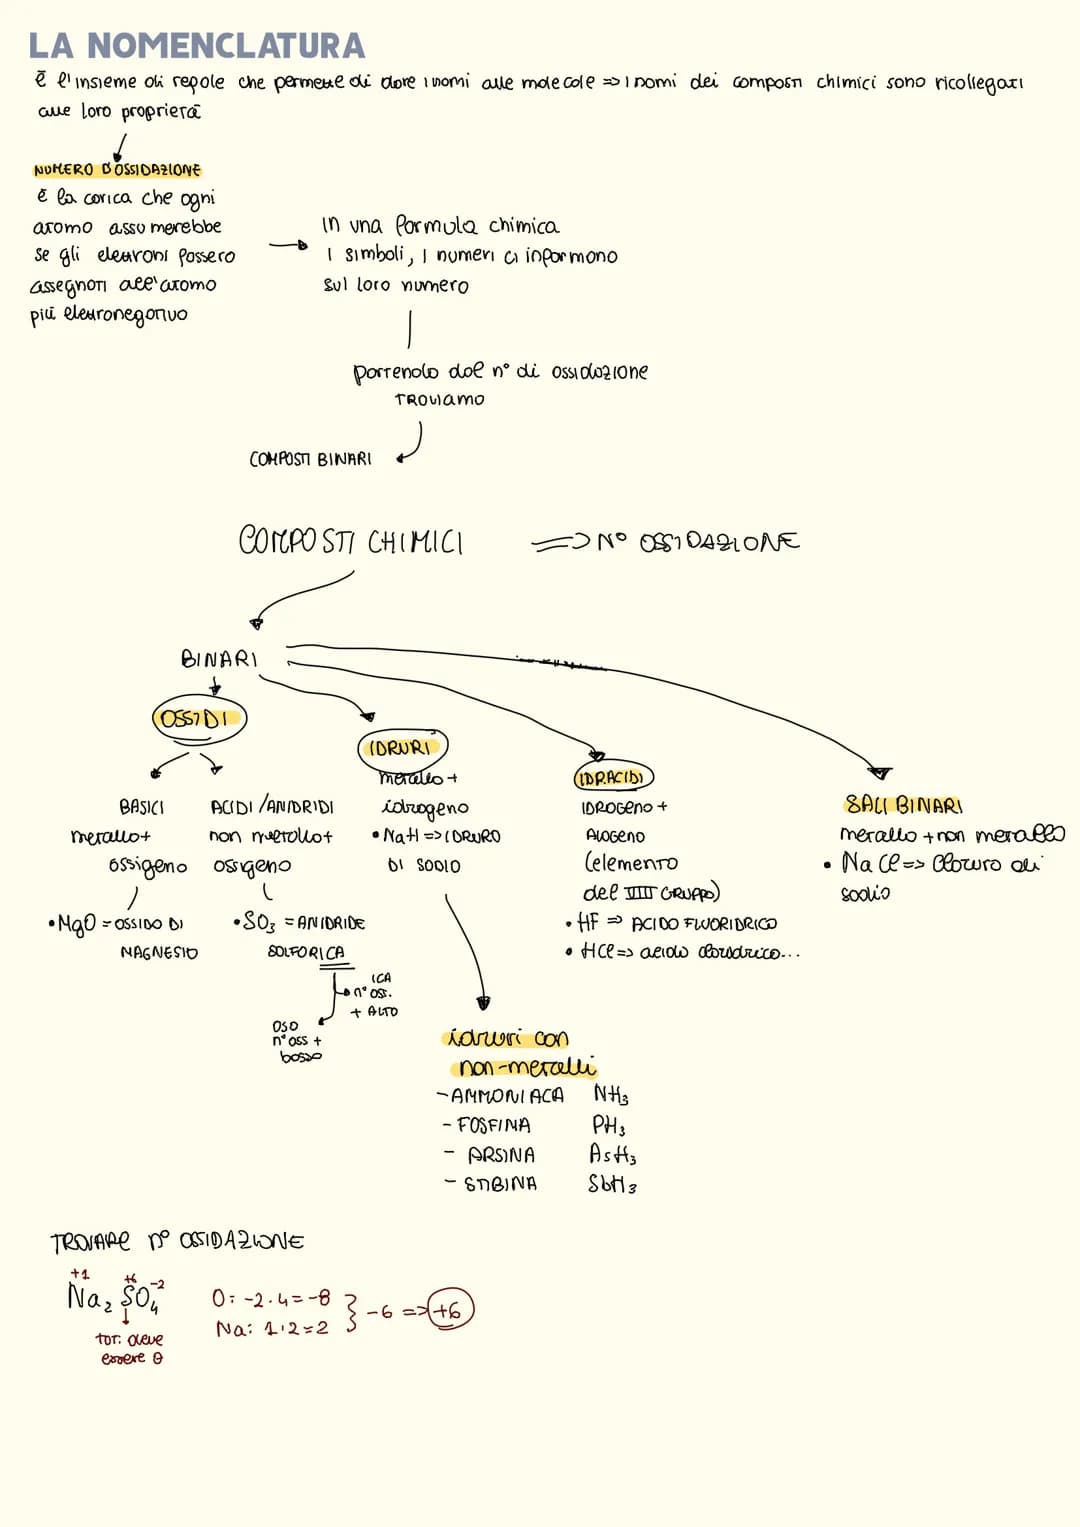 LA NOMENCLATURA
è l'insieme di regole che permette di dare i nomi alle molecole => i nomi dei composti chimici sono ricollegati
alle loro proprietà
NUMERO D'OSSIDAZIONE
è la carica che ogni
atomo assumerebbe
se gli elettroni fossero
assegnati all'atomo
più elettronegativo
In una formula chimica
i simboli, i numeri ci informano
sul loro numero
partendo dal n° di ossidazione
TROVIAMO
COMPOSTI BINARI
COMPOSTI CHIMICI => N° OSSIDAZIONE
BINARI
OSSIDI
IDRURI
IDRACIDI
SALI BINARI
BASICI
metallo +
ossigeno
• MgO = OSSIDO DI
MAGNESIO
ACIDI / ANIDRIDI
non metallo +
ossigeno
• SO3 = ANIDRIDE
SOLFORICA
ICA
n° oss.
+ ALTO
OSO
n° oss +
basso
metallo +
idrogeno
• NaH => IDRURO
DI SODIO
IDROGENO +
ALOGENO
(elemento
del VIII GRUPPO)
• HF => ACIDO FLUORIDRICO
• HCl => acido cloridrico...
metallo + non metallo
• NaCl => Cloruro di
sodio
idruri con
non-metalli
- AMMONIACA NH3
- FOSFINA PH3
- ARSINA AsH3
- STIBINA SbH3
TROVARE n° OSSIDAZIONE
+1 +6 -2
Na2 SO4
tot: deve
essere 0
O: -2·4=-8
Na: 1·2=2
} -6 => +6